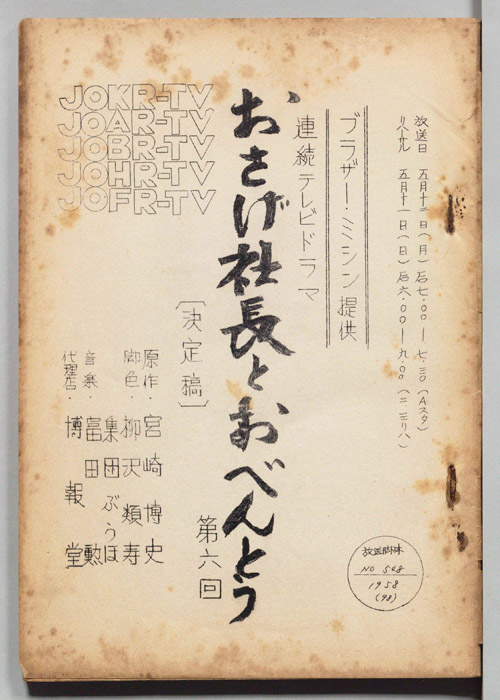 放送日 五月十二日(月)后七.〇〇―七.三〇(Aスタ)
リハーサル 五月十一日(日)后六.〇〇―九.〇〇(二三リハ)
ブラザー・ミシン提供
連続テレビドラマ
おさげ社長とおべんとう
第六回
〔決定稿〕
JOKR-TV
JOAR-TV
JOBR-TV
JOHR-TV
JOFR-TV
原作・宮崎博史
脚色・柳沢類寿
集団ぶうほ
音楽・富田勲
代理店・博報堂
放送脚本
NO 548
1958
(98)